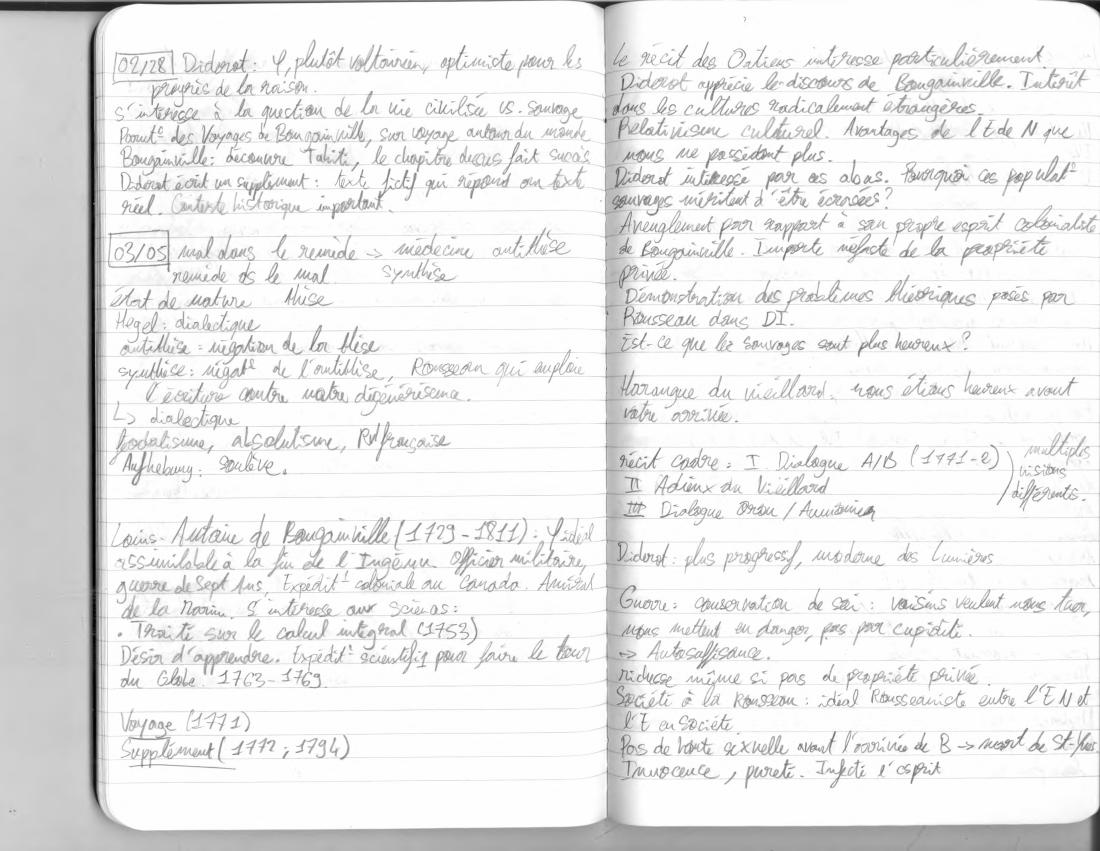 02/28 Diderot : φ, plutôt voltairien, optimiste pour les
progrès de la raison.
s'intéresse à la question de la vie civilisée vs. sauvage
Parut° des Voyages de Bougainville, sur voyage autour du monde
Bougainville : découvre Tahiti, le chapitre dessus fait succès
Diderot écrit un supplément : texte fictif qui répond au texte
réel. Contexte historique important.
03/05 mal dans le remède → médecine antithèse
remède ds le mal synthèse
état de nature thèse
Hegel : dialectique
antithèse = négation de la thèse
synthèse : négat° de l'antithèse, Rousseau qui emploie
l'écriture contre notre dégénérescence.
↳ dialectique
féodalisme, absolutisme, Rv° française
Aufhebung : soulève.
Louis-Antoine de Bougainville (1729-1811) : φ idéal
assimilable à la fin de l'Ingénu. Officier militaire,
guerre de Sept Ans, Expédit° coloniale au Canada. Amiral
de la Marine. S'intéresse aux sciences :
• Traité sur le calcul intégral (1753)
Désir d'apprendre. Expédit° scientifq pour faire le tour
du Globe. 1763-1769.
Voyage (1771)
Supplément (1772 ; 1794)
Le récit des Otaïtiens intéresse particulièrement.
Diderot apprécie le discours de Bougainville. Intérêt
dans les cultures radicalement étrangères.
Relativisme culturel. Avantages de l'E de N que
nous ne possédont plus.
Diderot intéressé par ces abus. Pourquoi ces populat°
sauvages méritent d'être écrasées ?
Aveuglement par rapport à son propre esprit colonialiste
de Bougainville. Importe néfaste de la propriété
privée.
Démonstration des problèmes théoriques posés par
Rousseau dans DI.
Est-ce que les sauvages sont plus heureux ?
Harangue du vieillard, nous étions heureux avant
votre arrivée.
récit cadre : I Dialogue A/B (1771-2) multiples
II Adieux du Vieillard visions
III Dialogue Orou / Aumônier différents.
Diderot : plus progressif, moderne des Lumières
Guerre : conservation de soi : voisins veulent nous tuer,
nous mettent en danger, pas par cupidité.
→ Autosuffisance.
richesse même si pas de propriété privée.
Société à la Rousseau : idéal Rousseauiste entre l'E N et
l'E en Société
Pas de honte sexuelle avant l'arrivée de B → mort de
Innocence, pureté. Infecte l'esprit